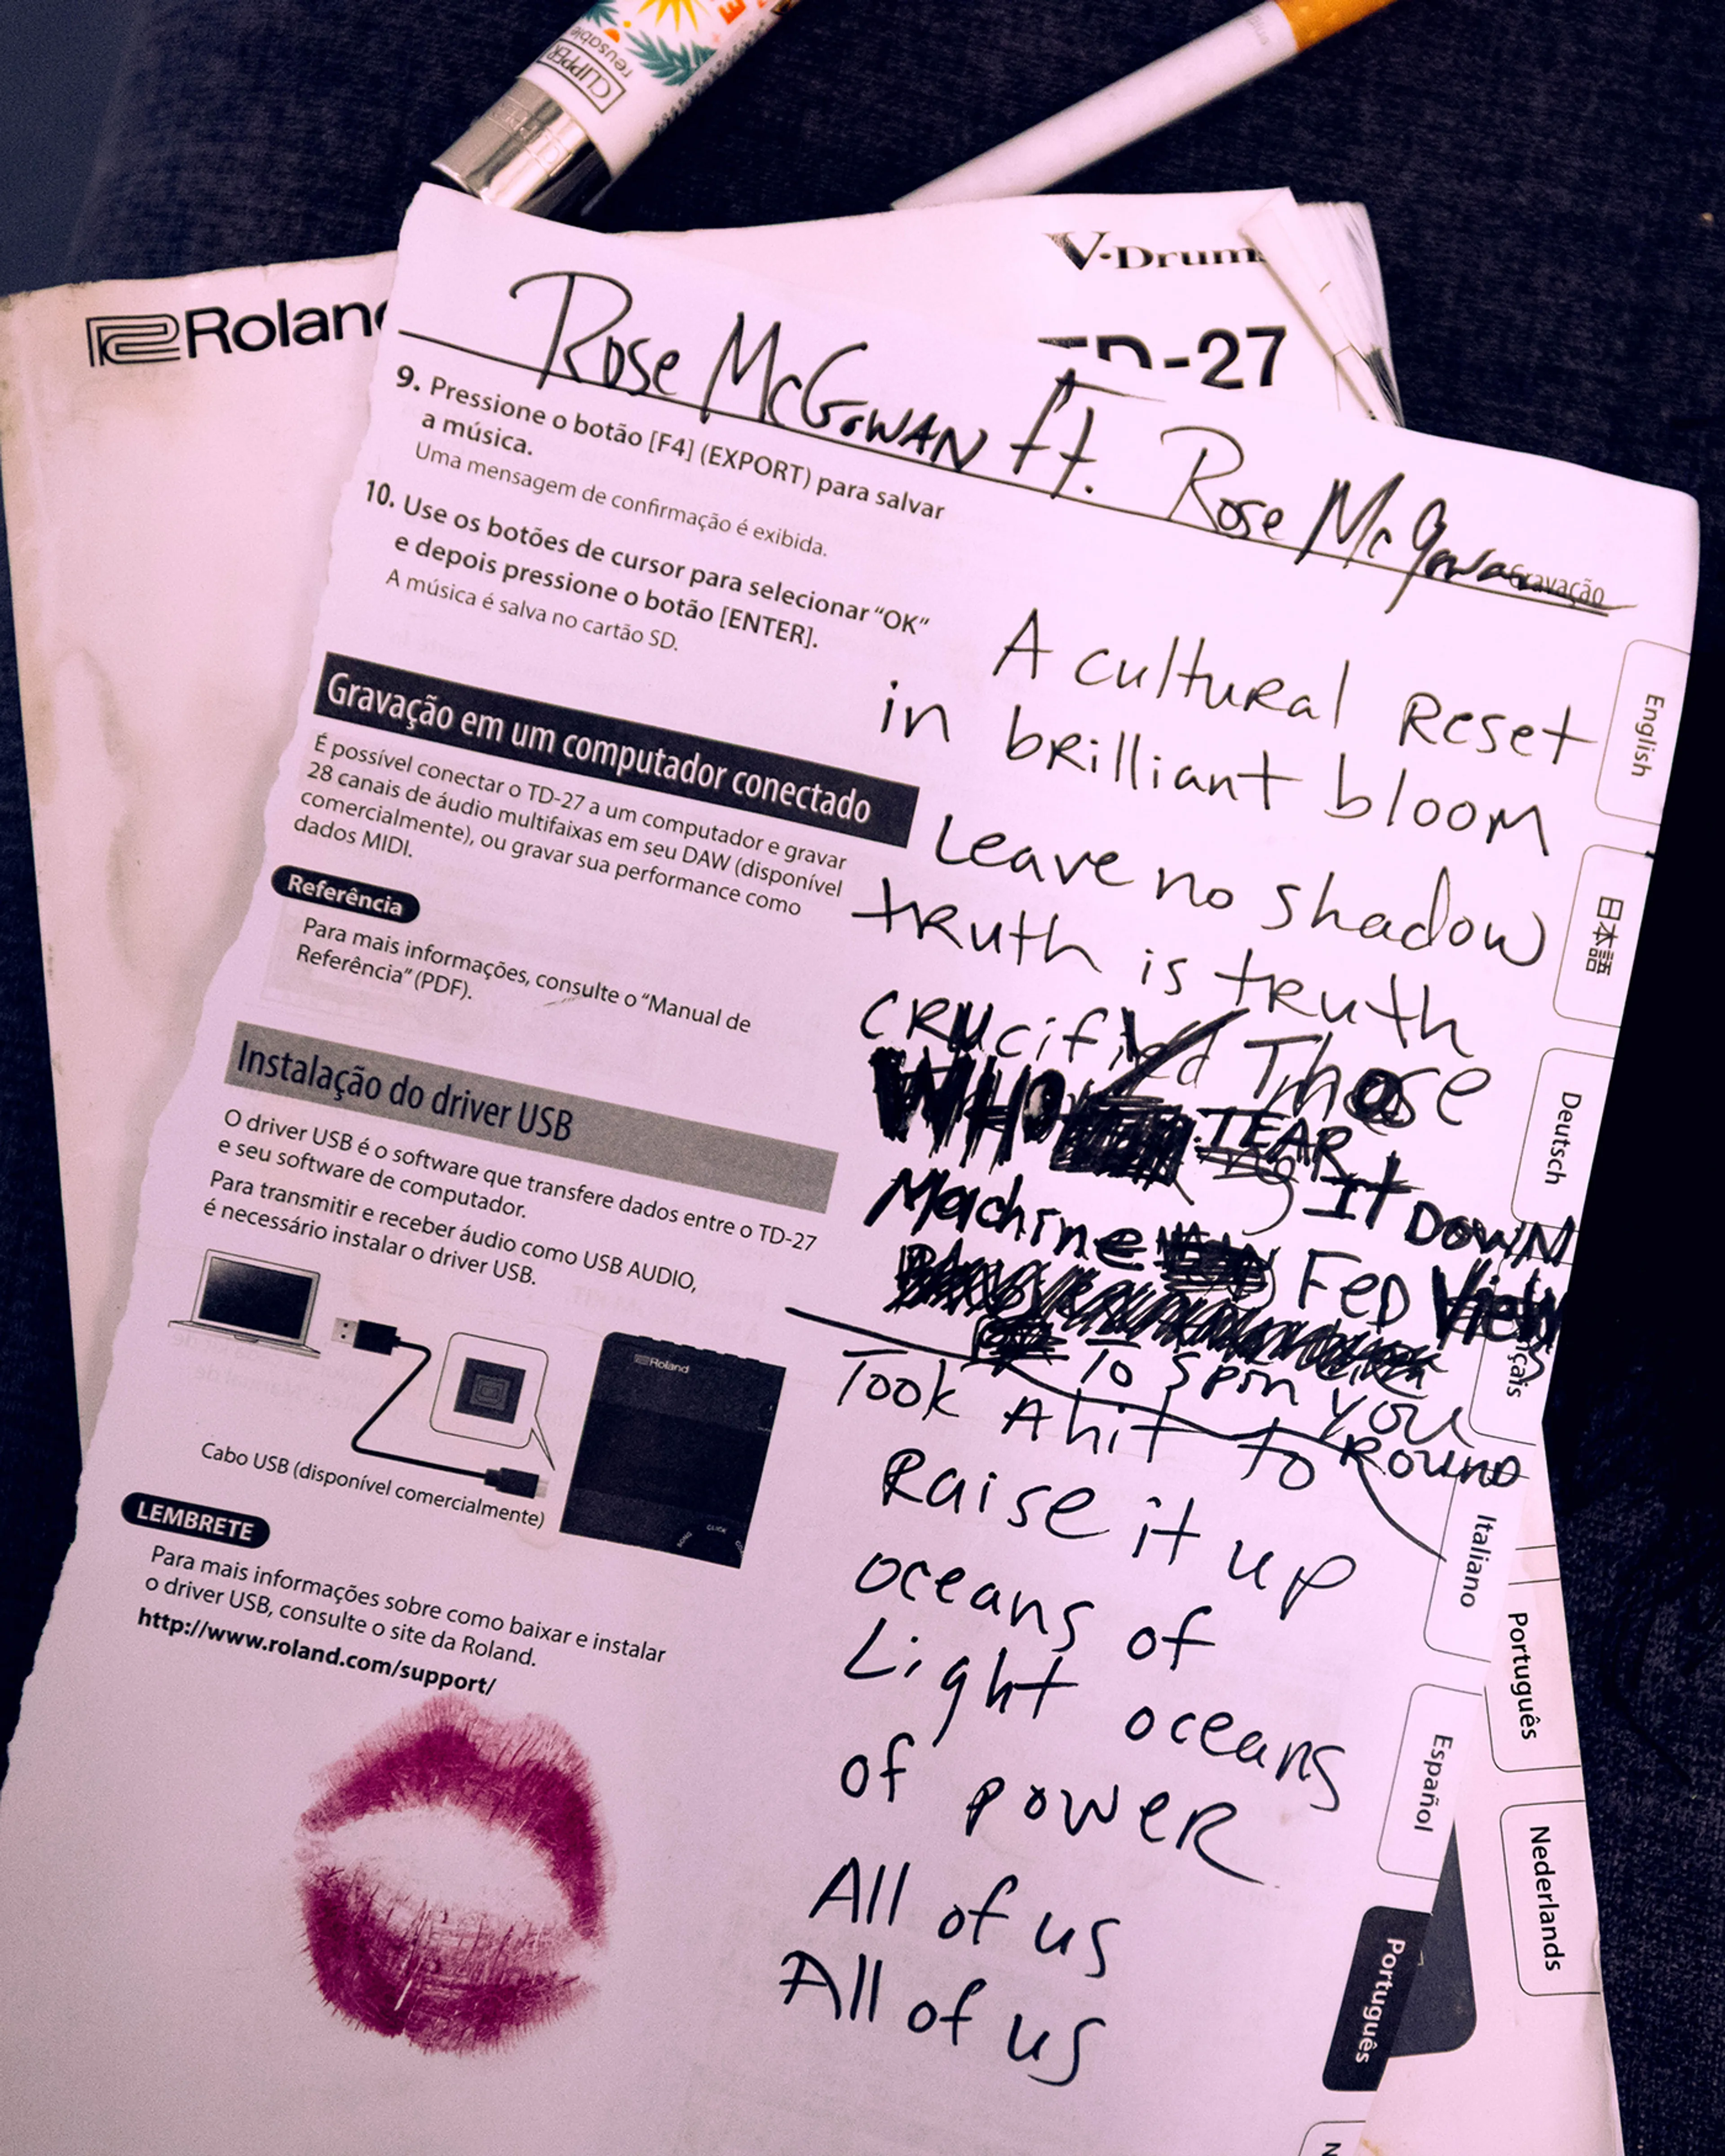 CLIPPER
reusable
Roland
V-Drum
TD-27
Rose McGowan ft. Rose McGowan
Gravação
9. Pressione o botão [F4] (EXPORT) para salvar
a música.
Uma mensagem de confirmação é exibida.
10. Use os botões de cursor para selecionar “OK”
e depois pressione o botão [ENTER].
A música é salva no cartão SD.
Gravação em um computador conectado
É possível conectar o TD-27 a um computador e gravar
28 canais de áudio multifaixas em seu DAW (disponível
comercialmente), ou gravar sua performance como
dados MIDI.
Referência
Para mais informações, consulte o “Manual de
Referência” (PDF).
Instalação do driver USB
O driver USB é o software que transfere dados entre o TD-27
e seu software de computador.
Para transmitir e receber áudio como USB AUDIO,
é necessário instalar o driver USB.
Roland
CLICK
SONG
Cabo USB (disponível comercialmente)
LEMBRETE
Para mais informações sobre como baixar e instalar
o driver USB, consulte o site da Roland.
http://www.roland.com/support/
A cultural Reset
in brilliant bloom
Leave no shadow
truth is truth
crucified Those
WHO TEAR
It DOWN
Machine Fed Views
To spin you
Round
Took A hit to
Raise it up
oceans of
Light oceans
of power
All of us
All of us
English
日本語
Deutsch
çais
Italiano
Español
Português
Português
Nederlands
N